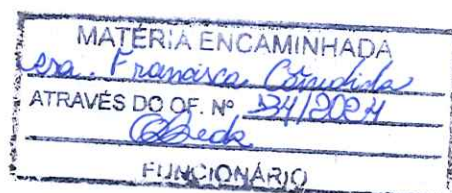 MATÉRIA ENCAMINHADA
Francisca
ATRAVÉS DO OF. Nº 534/2024
FUNCIONÁRIO